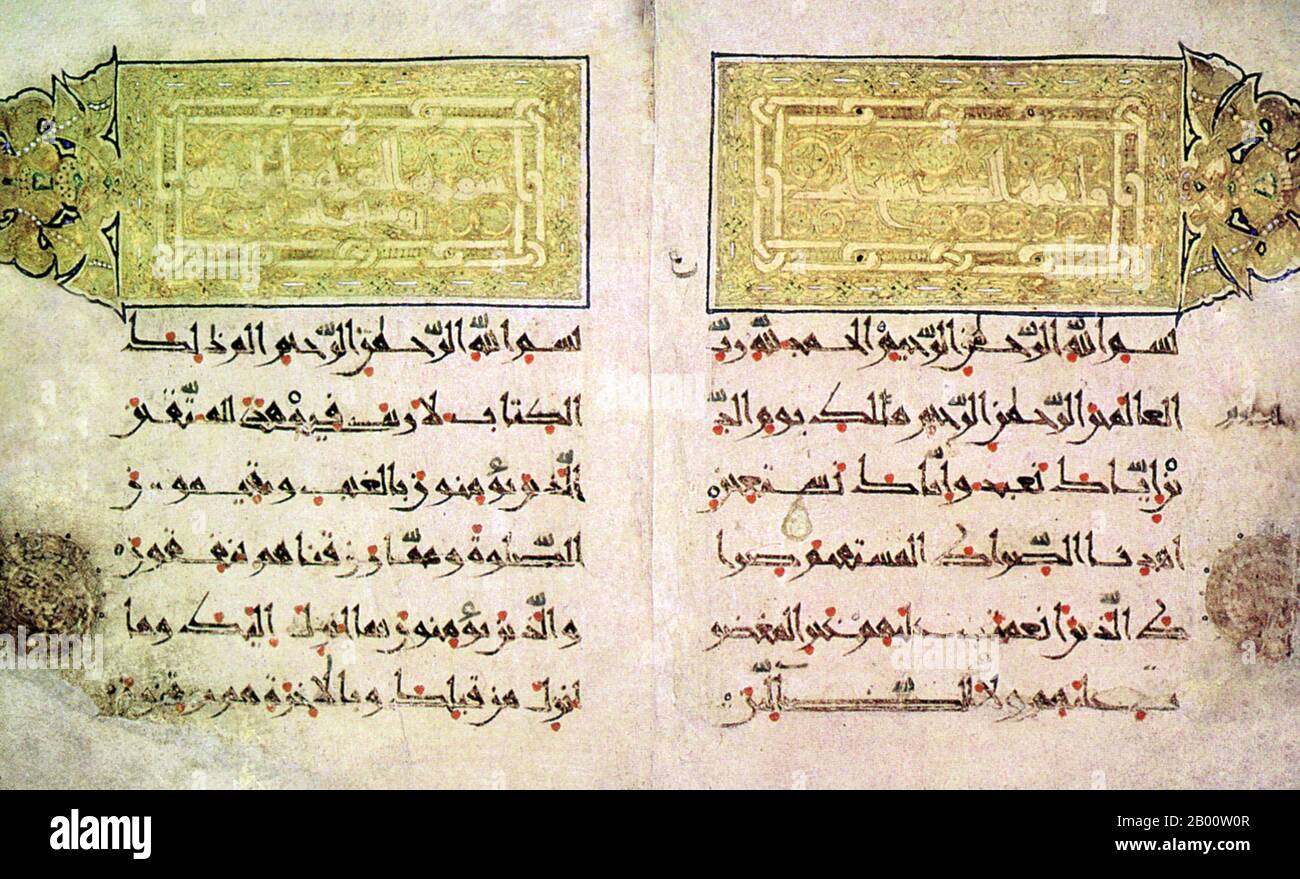 بسم الله الرَّحمٰن الرَّحيم الحمد لله ربّ
العالمين الرَّحمٰن الرَّحيم مٰلك يوم الدّ
ين ايّاك نعبد وايّاك نستعين
اهدنا الصّراط المستقيم صرا
ط الّذين انعمت عليهم غير المغضو
ب عليهم ولا الضّآلّين
بسم الله الرَّحمٰن الرَّحيم الم ذلك
الكتاب لا ريب فيه هدى للمتّقين
الّذين يؤمنون بالغيب ويقيمون
الصّلوة وممّا رزقناهم ينفقون
والّذين يؤمنون بما انزل اليك وما
انزل من قبلك وبالاخرة هم يوقنون
alamy
Image ID: 2B00W0R
www.alamy.com